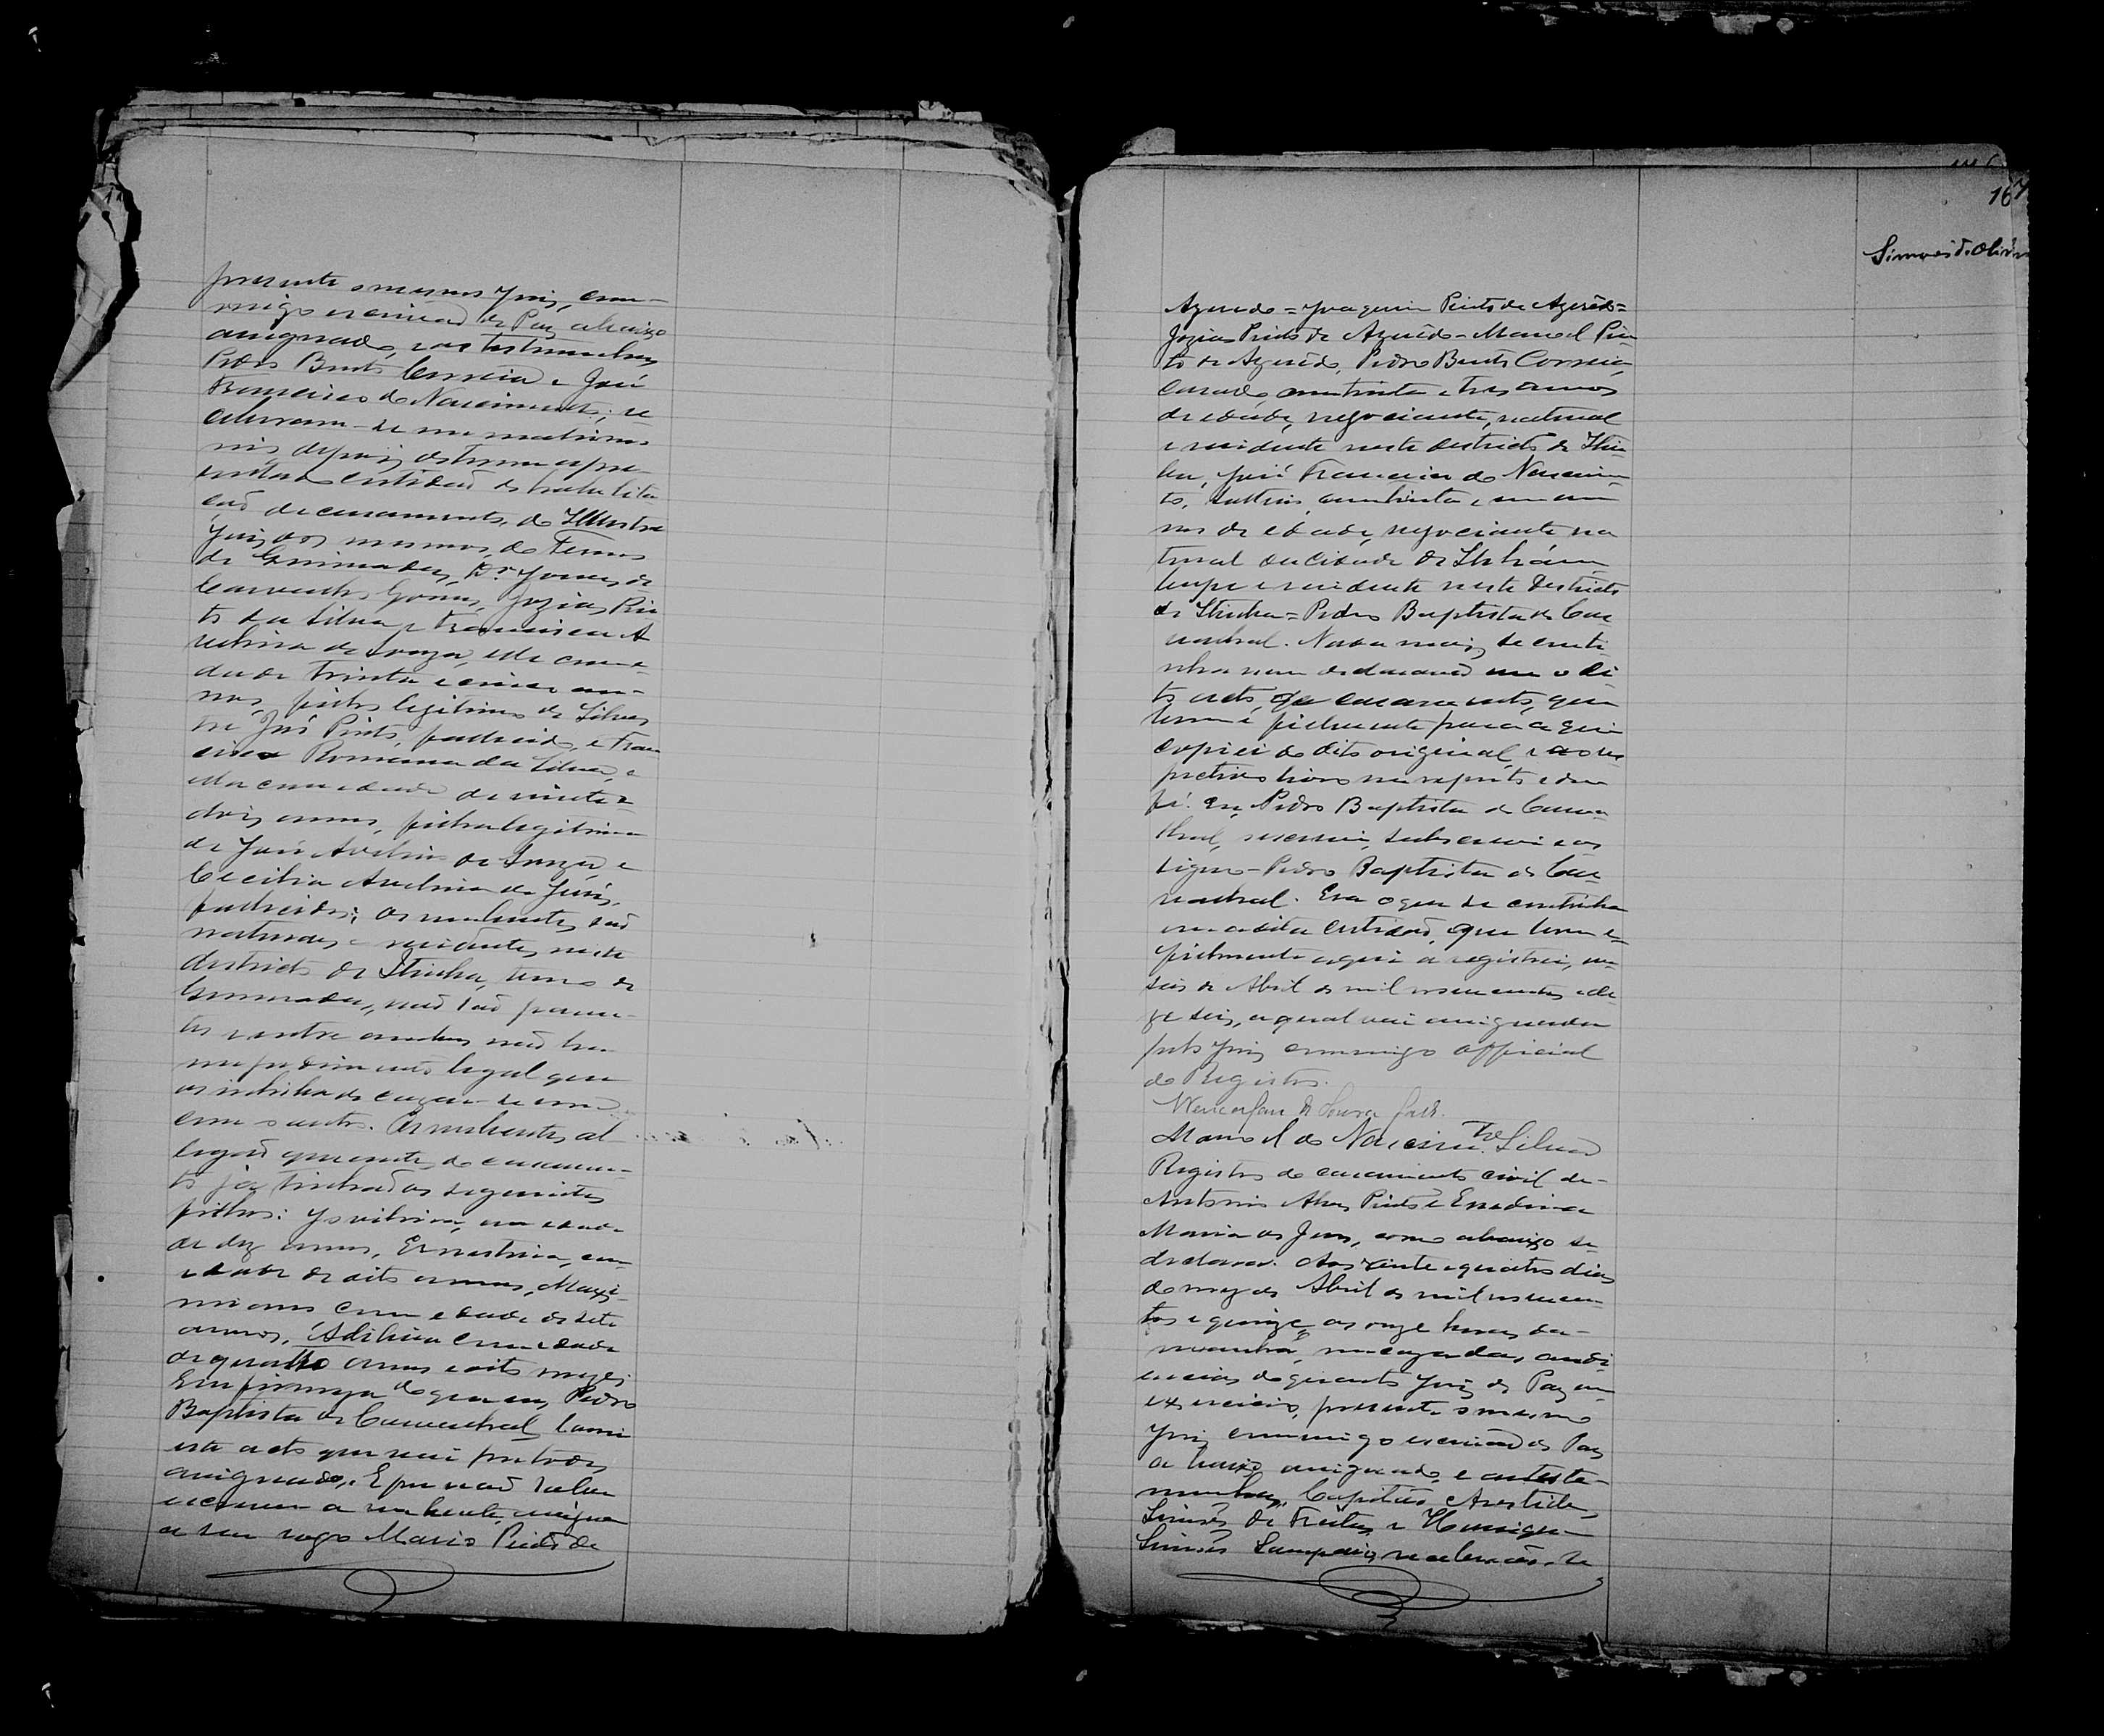 presente o mesmo Juiz, com-
migo escrivão de Paz abaixo
assignado, e as testemunhas
Pedro Bento Correia e José
Francisco do Nascimento; re
ceberam-se em matrimo
nio, depois de terem apre
sentado certidão de habilita
ção de casamento, do Illustre
Juiz dos mesmos, do Termo
de Dr. de
Gomes, Jozias Pin
to da Silva e Francisca A
velina de Souza, elle com e
dade trinta e cinco an-
nos, filho legitimo de Silves
tre José Pinto, fallecido, e Fran
cisca Romana da Silva, e
ella com edade de vinte e
dois annos, filha legitima
de José Avelino de Souza, e
Cecilia Avelina de Jesus,
fallecidos; os nubentes são
naturaes e residentes neste
districto de termo de
não são paren-
tes e entre ambos não ha
impedimento legal que
os inhiba de cazar-se um
com o outro. Os nubentes al
legão que antes do casamen-
to já tinhão os seguintes
filhos: com edade
de dez annos, Ernestina, com
edade de oito annos, Maxi-
miano com edade de sete
annos, Adilina com edade
de quatro annos e oito mezes.
Em firmeza do que eu, Pedro
Baptista de lavrei
este acto que vai por todos
assignado. E por não saber
escrever a nubente, assigna
a seu rogo Mario Pinto de
167
Simões d. Oliveira
Azevedo = Joaquim Pinto de Azevêdo =
Jozias Pinto de Azevêdo - Manoel Pin
to de Azevêdo, Pedro Bento Correia,
casado, com trinta e tres annos
de edade, negociante, natural
e residente neste districto de
José Francisco do Nascimen
to, solteiro, com trinta e um an
nos de edade, negociante na
tural da cidade de
e residente neste Districto
de = Pedro Baptista de
Nada mais se conti
nha nem declarava em o di
to acto, de casamento, que
bem e fielmente para aqui
copiei do dito original, e ao res
pectivo livro me reporto e dou
fé. Eu, Pedro Baptista de
escrivão, subscrevi e as
signo - Pedro Baptista de
Era o que se continha
em a dita certidão, que bem e
fielmente aqui a registrei, em
seis de Abril de mil novecentos e de
zeseis, a qual vai assignada
pelo Juiz commigo official
do Registro.
Manoel do Nascimto Silva
Registro do casamento civil de
Antonio Alves Pinto e
Maria de Jesus, como abaixo se
declara. Aos vinte e quatro dias
do mez de Abril de mil novecen
tos e quinze, as onze horas da
manhã, em caza das audi
encias do quarto Juiz de Paz em
exercicio, presente o mesmo
Juiz commigo escrivão de Paz
abaixo assignado, e as teste-
munhas, Capitão Aristides
Simões de Freitas e Henrique
Simões Sampaio, receberão-se